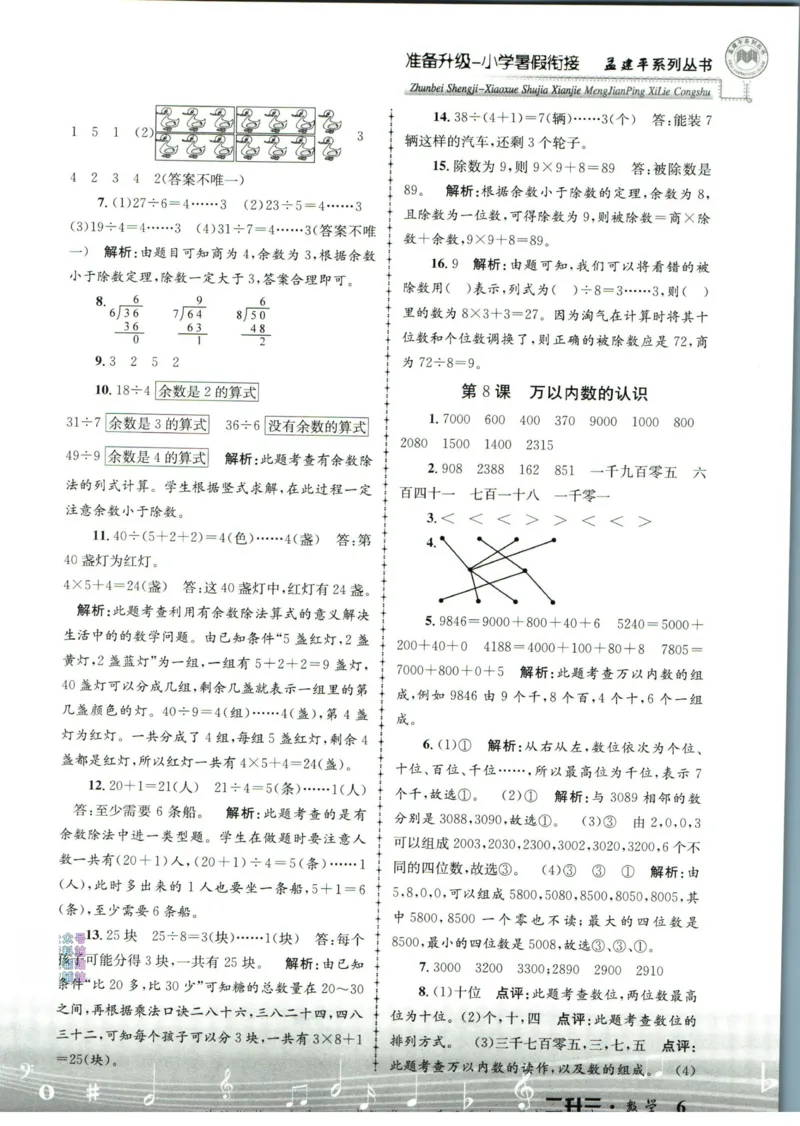 准备升级-小学暑假衔接 孟建平系列丛书
Zhunbei Shengji-Xiaoxue Shujia Xianjie MengJianPing XiLie Congshu
1 5 1 (2) 3
4 2 3 4 2(答案不唯一)
7. (1)27÷6=4……3 (2)23÷5=4……3
(3)19÷4=4……3 (4)31÷7=4……3(答案不唯
一) 解析:由题目可知商为4,余数为3,根据余数
小于除数定理,除数一定大于3,答案合理即可。
8. 6 9 6
6)36 7)64 8)50
36 63 48
0 1 2
9. 3 2 5 2
10. 18÷4 余数是2的算式
31÷7 余数是3的算式 36÷6 没有余数的算式
49÷9 余数是4的算式 解析:此题考查有余数除
法的列式计算。学生根据竖式求解,在此过程一定
注意余数小于除数。
11. 40÷(5+2+2)=4(色)……4(盏) 答:第
40盏灯为红灯。
4×5+4=24(盏) 答:这40盏灯中,红灯有24盏。
解析:此题考查利用有余数除法算式的意义解决
生活中的的数学问题。由已知条件“5盏红灯,2盏
黄灯,2盏蓝灯”为一组,一组有5+2+2=9盏灯,
40盏灯可以分成几组,剩余几盏就表示一组里的第
几盏颜色的灯。40÷9=4(组)……4(盏),第4盏
灯为红灯。一共分成了4组,每组5盏红灯,剩余4
盏都是红灯,所以红灯一共有4×5+4=24(盏)。
12. 20+1=21(人) 21÷4=5(条)……1(人)
答:至少需要6条船。 解析:此题考查的是有
余数除法中进一类型题。学生在做题时要注意人
数一共有(20+1)人,(20+1)÷4=5(条)……1
(人),此时多出来的1人也要坐一条船,5+1=6
(条),至少需要6条船。
13. 25块 25÷8=3(块)……1(块) 答:每个
孩子可能分得3块,一共有25块。 解析:由已知
条件“比20多,比30少”可知糖的总数量在20~30
之间,再根据乘法口诀二八十六,三八二十四,四八
三十二,可知每个孩子可以分3块,一共有3×8+1
=25(块)。
14. 38÷(4+1)=7(辆)……3(个) 答:能装7
辆这样的汽车,还剩3个轮子。
15. 除数为9,则9×9+8=89 答:被除数是
89。 解析:根据余数小于除数的定理,余数为8,
且除数为一位数,可得除数为9,则被除数=商×除
数+余数,9×9+8=89。
16. 9 解析:由题可知,我们可以将看错的被
除数用( )表示,列式为( )÷8=3……3,则( )
里的数为8×3+3=27。因为淘气在计算时将其十
位数和个位数调换了,则正确的被除数应是72,商
为72÷8=9。
第8课 万以内数的认识
1. 7000 600 400 370 9000 1000 800
2080 1500 1400 2315
2. 908 2388 162 851 一千九百零五 六
百四十一 七百一十八 一千零一
3. < < < < > < < >
4.
5. 9846=9000+800+40+6 5240=5000+
200+40+0 4188=4000+100+80+8 7805=
7000+800+0+5 解析:此题考查万以内数的组
成,例如9846由9个千,8个百,4个十,6个一组
成。
6. (1)① 解析:从右从左,数位依次为个位、
十位、百位、千位……,所以最高位为千位,表示7
个千,故选①。 (2)① 解析:与3089相邻的数
分别是3088,3090,故选①。 (3)③ 由2,0,0,3
可以组成2003,2030,2300,3002,3020,3200,6个不
同的四位数,故选③。 (4)③ ③ ① 解析:由
5,8,0,0,可以组成5800,5080,8500,8050,8005,其
中5800,8500一个零也不读;最大的四位数是
8500,最小的四位数是5008,故选③、③、①。
7. 3000 3200 3300;2890 2900 2910
8. (1)十位 点评:此题考查数位,两位数最高
位为十位。(2)个,十,四 点评:此题考查数位的
排列方式。 (3)三千七百零五,三,七,五 点评:
此题考查万以内数的读作,以及数的组成。 (4)
二升三·数学 6